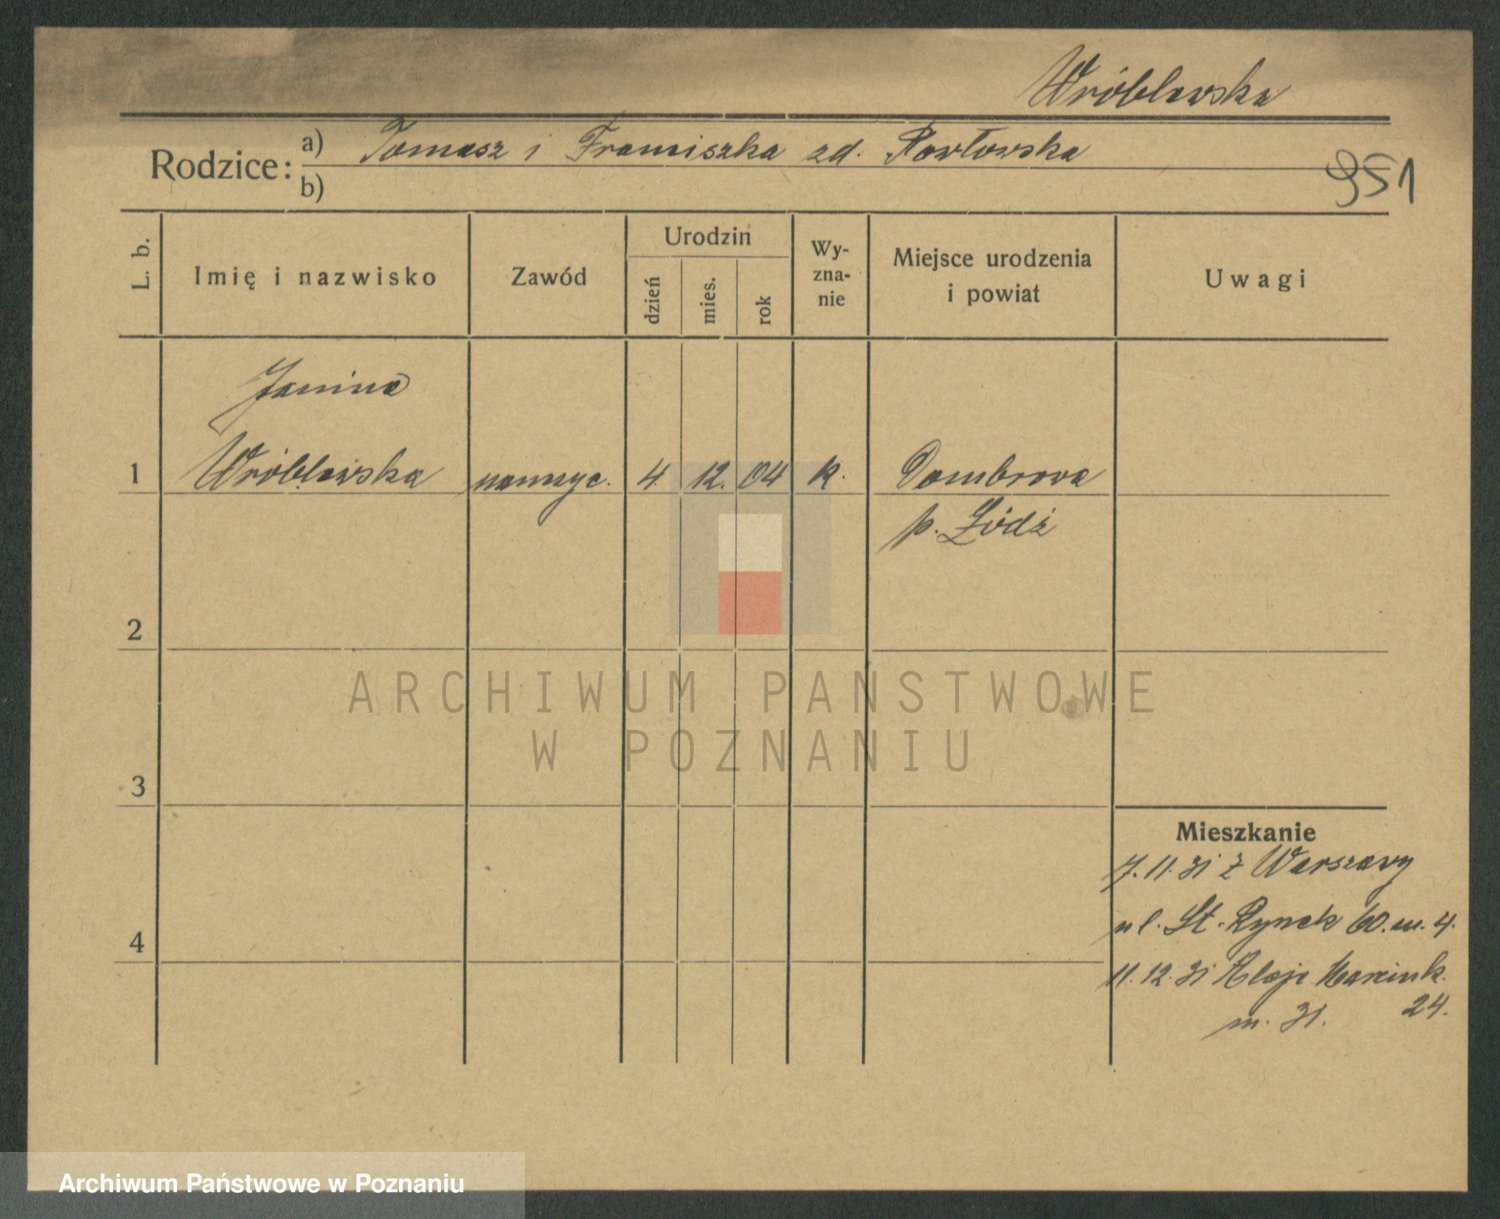 Wróblewska
Rodzice: a) Tomasz i Franciszka zd. Pawłowska
b)
951
L. b.
Imię i nazwisko
Zawód
Urodzin
dzień
mies.
rok
Wy-
zna-
nie
Miejsce urodzenia
i powiat
Uwagi
Janina
1 Wróblewska nauczyc. 4 12. 04 k. Dombrowa
p. Łódź
2
3
4
ARCHIWUM PAŃSTWOWE
W POZNANIU
Mieszkanie
7.11.31 z Warszawy
ul. St. Rynek 60. m. 4.
11.12.31 Aleje Marcink.
24.
m. 31.
Archiwum Państwowe w Poznaniu